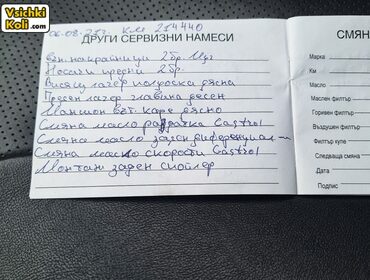 Vsichki
Koli.com
06.08.23г. км 214440
ДРУГИ СЕРВИЗНИ НАМЕСИ
Вън. накрайници 2бр.
Носачи предни 2бр.
Висящ лагер полуоска дясна
Преден лагер главина десен
Маншон вът. каре дясно
Смяна масло раздатка Castrol
Смяна масло заден диференциал
Смяна масло скорости Castrol
Монтаж заден спойлер
СМЯН
Марка
Км
Масло
Маслен филтър
Горивен филтър
Въздушен филтър
Филтър купе
Следваща смяна
Дата
Подпис